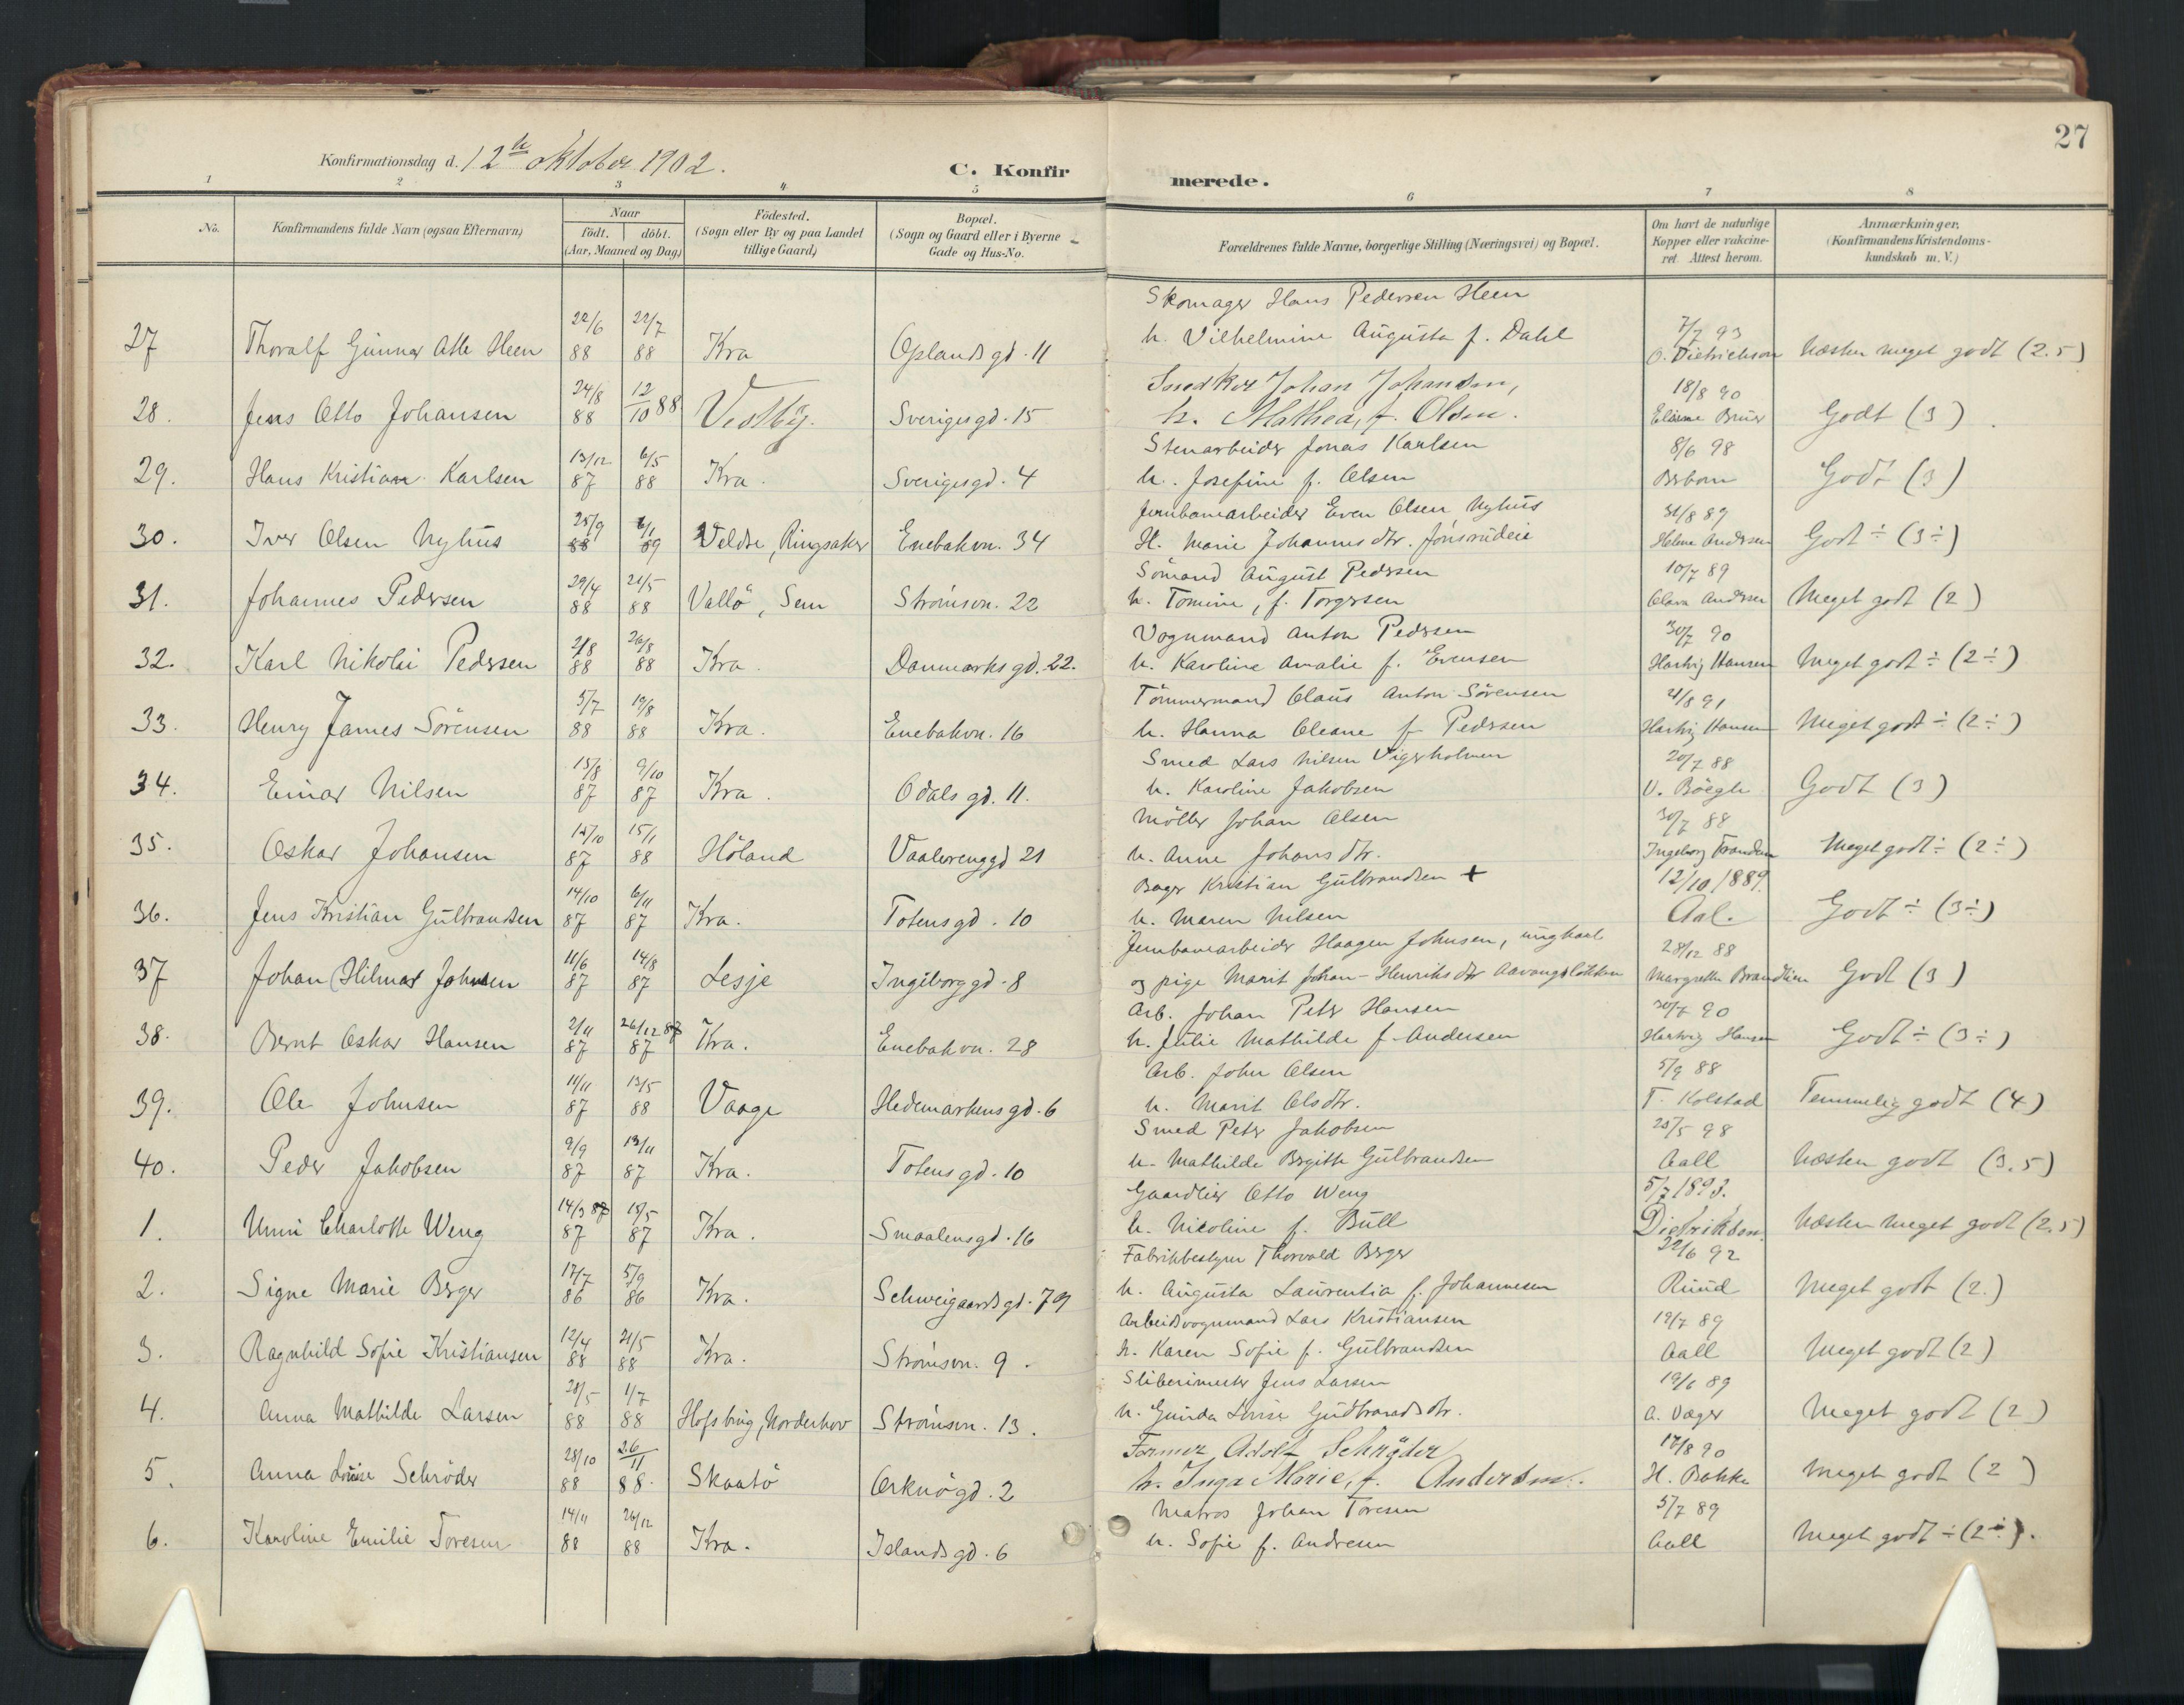 27
Konfirmationsdag d. 12te oktober 1902.
C. Konfirmerede.
1 2 3 4 5 6 7 8
No.
Konfirmandens fulde Navn (ogsaa Efternavn)
Naar
födt. döbt.
(Aar, Maaned og Dag)
Födested.
(Sogn eller By og paa Landet
tillige Gaard)
Bopæl.
(Sogn og Gaard eller i Byerne
Gade og Hus-No.
Forældrenes fulde Navne, borgerlige Stilling (Næringsvei) og Bopæl.
Om havt de naturlige
Kopper eller vakcine-
ret. Attest herom.
Anmærkninger.
(Konfirmandens Kristendoms-
kundskab m. V.)
Skomager Hans Pedersen Heen
22/6 22/7 7/7 93
27 Thoralf Gunnar Atle Heen 88 88 Kra Oplandsgd. 11 h. Vilhelmine Augusta f. Dahl O. Dietrichson Næsten meget godt (2.5)
24/8 12/10 88 Snedker Johan Johansen, 18/8 90
28. Jens Otto Johansen 88 Vestby. Sverigesgd. 15 h. Mathea, f. Olsen. Bruer Godt (3)
13/12 6/5 Stenarbeider Jonas Karlsen 8/6 98
29. Hans Kristian Karlsen 87 88 Kra. Sverigesgd. 4 h. Josefine f. Olsen Godt (3)
25/9 6/1 Jernbanearbeider Even Olsen Nyhus 31/8 89
30. Iver Olsen Nyhus 88 89 Veldre, Ringsaker Enebakvn. 34 H. Marie Johannesdtr. Jönsrudeie Helene Andersen Godt ÷ (3÷)
29/4 21/5 Sömand August Pedersen 10/7 89
31. Johannes Pedersen 88 88 Vallö, Sem Strömsvn. 22 h. Tomine, f. Torgersen Clara Andersen Meget godt (2)
2/8 26/8 Vognmand Anton Pedersen 30/7 90
32. Karl Nikolai Pedersen 88 88 Kra. Danmarksgd. 22. h. Karoline Amalie f. Evensen Hartvig Hansen Meget godt ÷ (2÷)
5/7 19/8 Tömmermand Claus Anton Sörensen 21/8 91
33. Henry James Sörensen 88 88 Kra. Enebakvn. 16 h. Hanna Oleane f. Pedersen Hartvig Hansen Meget godt ÷ (2÷)
15/8 9/10 Smed Lars Nilsen Vigerholmen 20/7 88
34. Einar Nilsen 87 87 Kra. Odalsgd. 11. h. Karoline Jakobsen V. Böegh Godt (3)
12/10 15/1 Möller Johan Olsen 30/7 88
35. Oskar Johansen 87 88 Höland Vaalerenggd 21 h. Anne Johansdtr. Ingeborg Trandem Meget godt ÷ (2÷)
14/10 6/11 Bager Kristian Gulbrandsen + 12/10 1889.
36. Jens Kristian Gulbrandsen 87 87 Kra. Totensgd. 10 h. Maren Nilsen Aal. Godt ÷ (3÷)
11/6 14/8 Jernbanearbeider Haagen Johnsen, ungkarl 28/12 88
37 Johan (Hilmar Johnsen 87 87 Lesje Ingeborggd. 8 og pige Marit Johan-Henriksdtr Aavangsløkken Margrethe Brandlien Godt (3)
2/11 26/12 87 Arb. Johan Peter Hansen 30/7 90
38. Bernt Oskar Hansen 87 87 Kra. Enebakvn. 28 h. Julie Mathilde f. Andersen Hartvig Hansen Godt ÷ (3÷)
11/11 13/5 Arb. John Olsen 5/9 88
39. Ole Johnsen 87 88 Vaage Hedemarkensgd. 6 h. Marit Olsdtr. T. Kolstad Temmelig godt (4)
9/9 13/11 Smed Peter Jakobsen 25/5 98
40. Peder Jakobsen 87 87 Kra. Totensgd. 10 h. Mathilde Birgitte Gulbrandsen Aall Næsten godt (3.5)
14/3 87 15/5 Gaardeier Otto Weng 5/7 1893.
1. Unni Charlotte Weng 87 87 Kra. Smaalensgd. 16 h. Nicoline f. Bull Dietrikson. Næsten meget godt (2.5)
17/7 5/9 Fabrikbestyrer Thorvald Berger 22/6 92
2. Signe Marie Berger 86 86 Kra. Schweigaardsgd. 79 h. Augusta Laurentia f. Johannesen Ruud Meget godt (2.)
12/4 21/5 Arbeidsvognmand Lars Kristiansen 19/7 89
3. Ragnhild Sofie Kristiansen 88 88 Kra. Strömsvn. 9. h. Karen Sofie f. Gulbrandsen Aall Meget godt (2)
28/5 1/7 Sliberimester Jens Larsen 19/6 89
4. Anna Mathilde Larsen 88 88 Hofsbrug, Norderhov Strömsvn. 13. h. Gunda Lovise Gudbrandsdtr. A. Vager Meget godt (2)
28/10 26/11 Former Adolf Schrøder 17/8 90
5. Anna Louise Schröder 88 88. Skaatö Orknögd. 2 h. Inga Marie, f. Andersen. H. Bakke Meget godt (2)
14/11 26/12 Matros Johan Toresen 5/7 89
6. Karoline Emilie Toresen 88 88 Kra. Islandsgd. 6 h. Sofie f. Andresen Aall Meget godt ÷ (2÷).